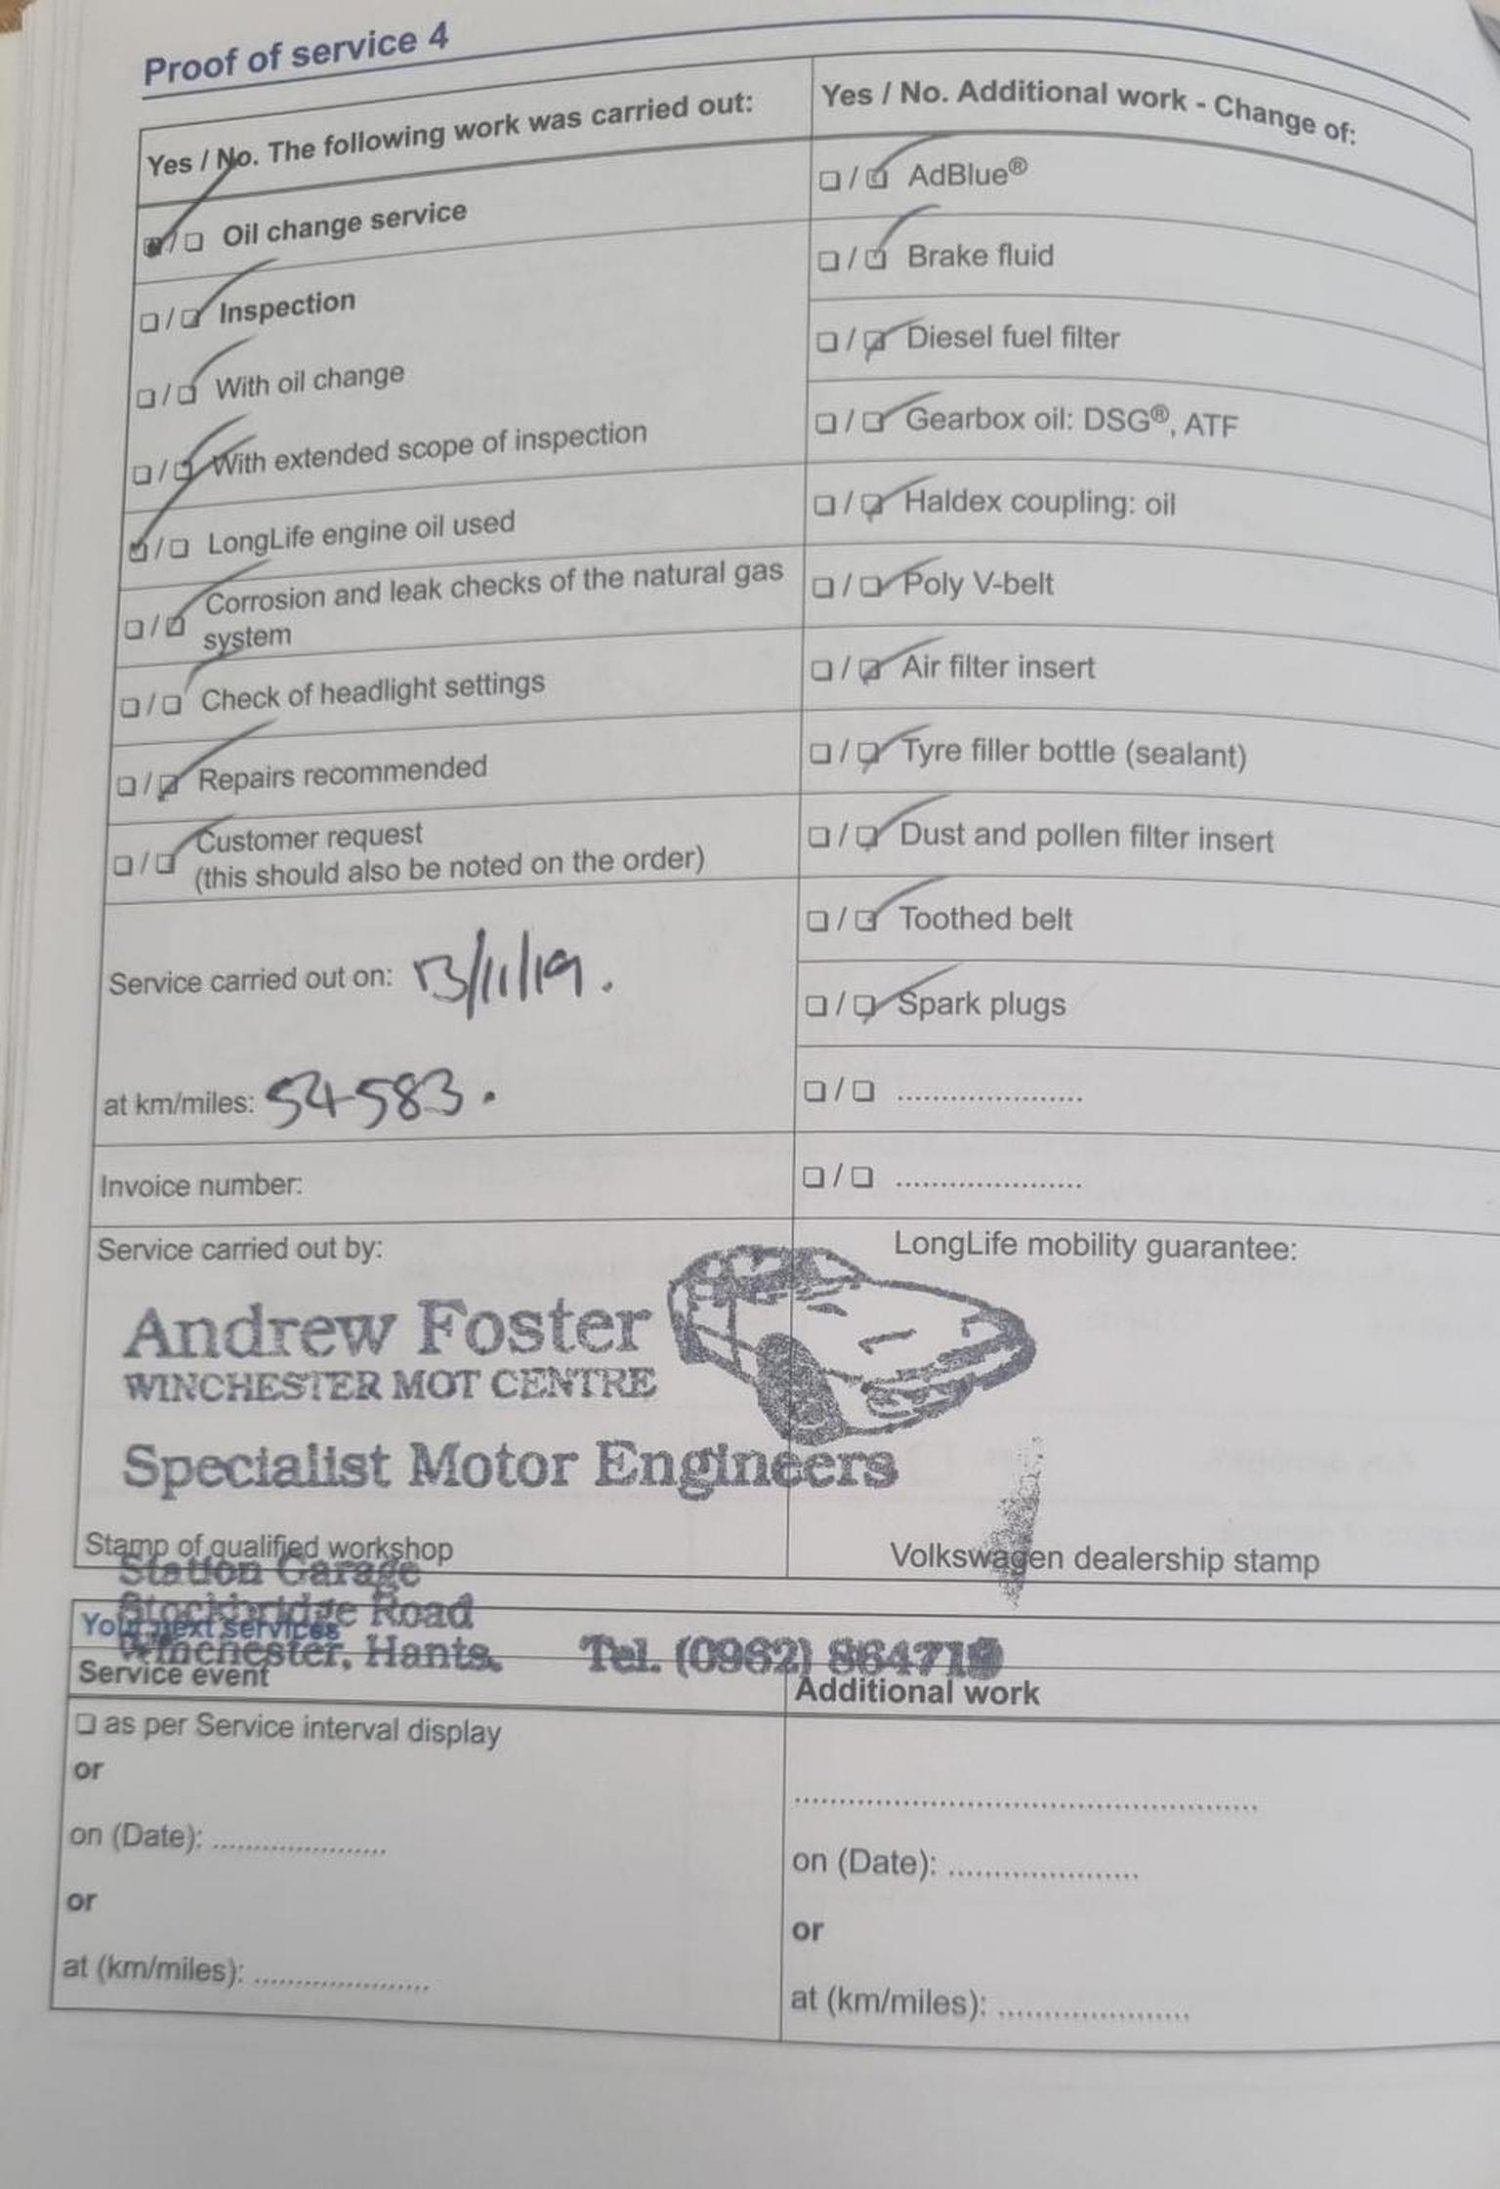 Proof of service 4
Yes / No. The following work was carried out:
Oil change service
Inspection
With oil change
With extended scope of inspection
LongLife engine oil used
Corrosion and leak checks of the natural gas
system
Check of headlight settings
Repairs recommended
Customer request
(this should also be noted on the order)
Service carried out on: 13/11/19.
at km/miles: 54583.
Invoice number:
Yes / No. Additional work - Change of:
AdBlue®
Brake fluid
Diesel fuel filter
Gearbox oil: DSG®, ATF
Haldex coupling: oil
Poly V-belt
Air filter insert
Tyre filler bottle (sealant)
Dust and pollen filter insert
Toothed belt
Spark plugs
Service carried out by:
Andrew Foster
WINCHESTER MOT CENTRE
Specialist Motor Engineers
Stamp of qualified workshop
LongLife mobility guarantee:
Volkswagen dealership stamp
Station Garage
Stockbridge Road
Your next services
Winchester, Hants. Tel. (0962)
Service event
as per Service interval display
or
on (Date):
or
at (km/miles):
Additional work
on (Date):
or
at (km/miles):